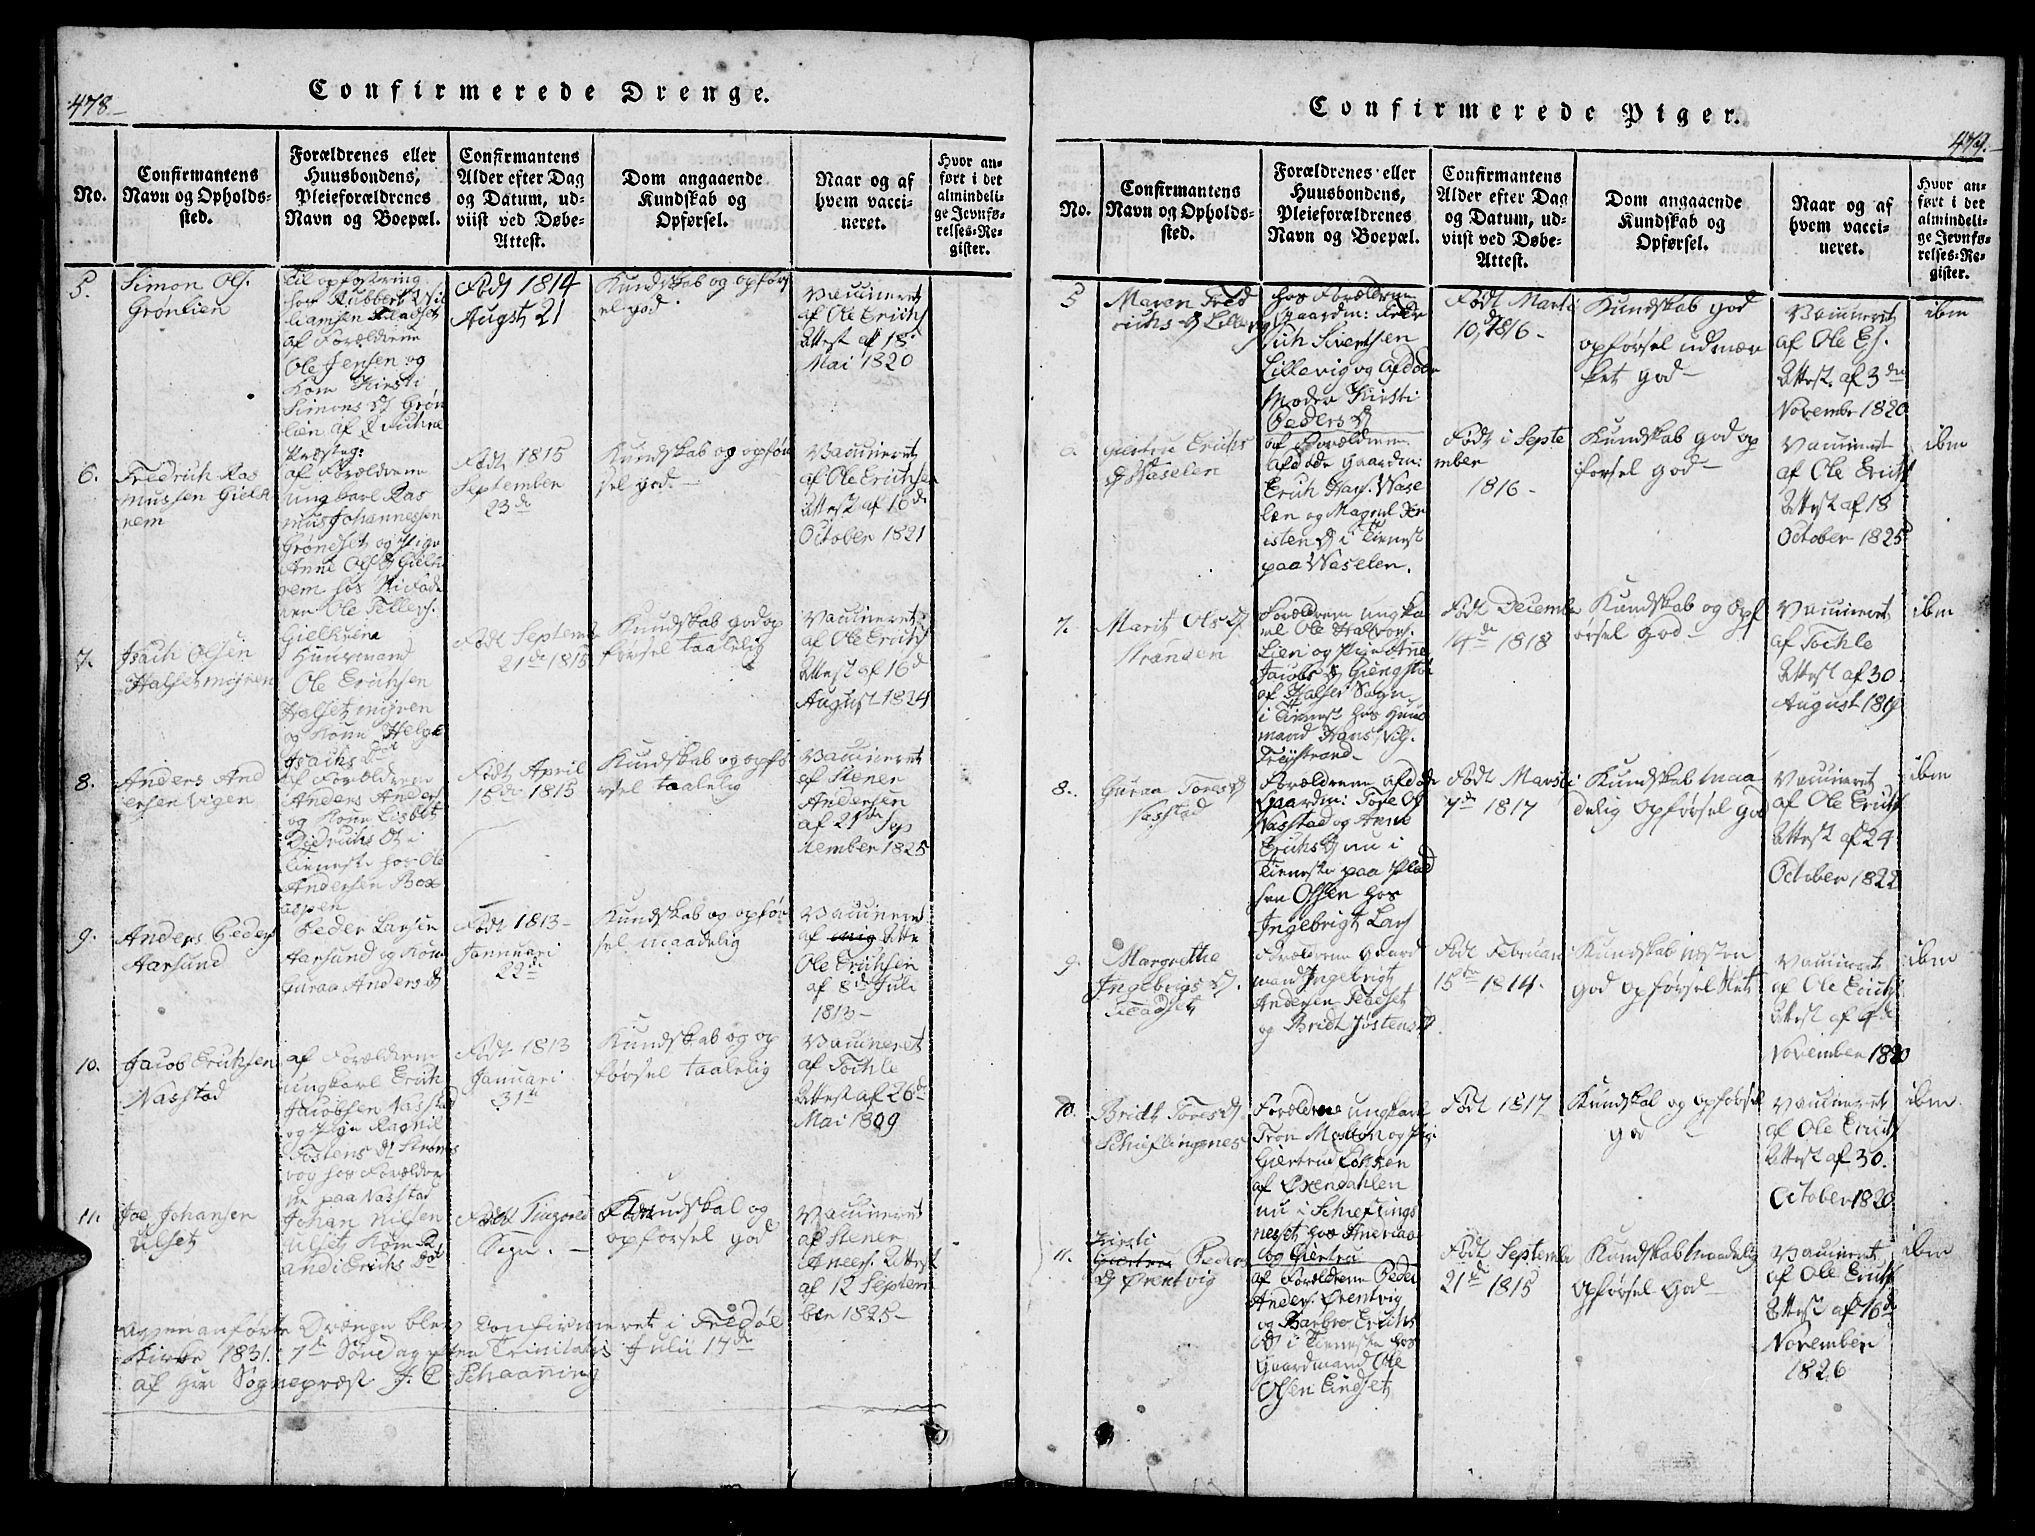 478
Confirmerede Drenge.
No.
Confirmantens
Navn og Opholds-
sted.
Forældrenes eller
Huusbondens,
Pleieforældrenes
Navn og Boepæl.
Confirmantens
Alder efter Dag
og Datum, ud-
viist ved Døbe-
Attest.
Dom angaaende
Kundskab og
Opførsel.
Naar og af
hvem vacci-
neret.
Hvor an-
ført i det
almindeli-
ge Jevnfø-
relses-Re-
gister.
5.
Simon Ols.
Grønlien
Til opfostring
hos
af Forældrene
Ole Jensen og
Kone Kirsti
Simons D Grøn
lien af
Født 1814
Augst 21
Kundskab og opførs
el god
Vaccineret
af Ole Erichs
Attest af 18
Mai 1820
6.
Fredrich Ras
mussen Gielh
rem
af Forældrene
ungkarl Ras
mus Johannessen
Grøndset og Pige
Anne Ols D Gielh
rem hos
Ole
Gielhrem
Født 1815
September
23de
Kundskab og opfør
sel god
Vaccineret
af Ole Erichsen
Attest af 16d
October 1821
7.
Isach Olsen
Halsetmøjren
Huusmand
Ole Erichsen
Halsetmøjren
og Kone Helge
Isachs Dot
Født Septemb
21de 1815
Kundskab god op
førsel taalelig
Vaccineret
af Ole Erichs
Attest af 16d
August 1824
8.
Anders And
ersen Vigen
af Forældrene
Anders Anders
og Kone Lisbet
Didrichs D i
Tieneste hos Ole
Andersen Box
aspen
Født April
15de 1815
Kundskab og opfø
rsel taalelig
Vaccineret
af Stener
Andersen
af 21de Sep
tember 1825
9.
Anders Peders
Aarsund
Peder Larsen
Aarsund og Kone
Guraa Anders D
Født 1813
Jannuari
22de
Kundskab og opfør
sel maadelig
Vaccineret
af mig Atte
Ole Erichsen
af 8de Juli
1813
10.
Jacob Erichsen
Nasstad
af Forældrene
ungkarl Erich
Jacobsen Nasstad
og Pige Ragnil
Tostens D
hos Forældre
ne paa Nasstad
Født 1813
Januari
31te
Kundskab og op
førsel taalelig
Vaccineret
af Tochle
Attest af 26de
Mai 1809
11.
Joe Johansen
Ulset
Johan Nilsen
Ulset Kone R
andi Erichs Dot
Født Tingvold
Sogn.
Kundskab og
opførsel god
Vaccineret
af Stener
Anders. Attest
af 12 Septem
ber 1825
Ovenanførte Drænge blev Confirmeret i Fredøl
Kirke 1831. 7de Søndag efter Trinitatis Julii 17de
af Herr Sognepræst J. C Schaanning
479.
Confirmerede Piger.
No.
Confirmantens
Navn og Opholds-
sted.
Forældrenes eller
Huusbondens,
Pleieforældrenes
Navn og Boepæl.
Confirmantens
Alder efter Dag
og Datum, ud-
viist ved Døbe-
Attest.
Dom angaaende
Kundskab og
Opførsel.
Naar og af
hvem vacci-
neret.
Hvor an-
ført i det
almindeli-
ge Jevnfø-
relses-Re-
gister.
5
Maren Fred
richs D Lillevig
hos Forældrene
Gaardm: Fredr
ich Sivertsen
Lillevig og afdøde
Moder Kirsti
Peders D
Født Marti
10d 1816
Kundskab god
opførsel udmær
ket god
Vaccineret
af Ole Es.
Attest. af 3die
November 1820
ibm
6
Giertru Erichs
D Waselen
af Forældrene
afdøde Gaardm:
Erich Hans. Wase
len og Magnil
D i Tienest
paa Waselen.
Født i Septe
mber
1816
Kundskab god op
førsel god
Vaccineret
af Ole Erichs
Attest af 18
October 1825
ibm
7.
Marit Ols D.
Stranden
Forældrene ungka
rl Ole Halvors.
Lien og Pige Anne
Jacobs D
af Halse Sogn
i Tienest hos Huus
mand Hans Nils.
Født Decemb
14de 1818
Kundskab og Opf
ørsel God
Vaccineret
af Tochle
Attest af 30
August 1819
ibm
8.
Guraa Tores D
Nasstad
Forældrene afdøde
Gaardm: Tore Ols
Nasstad og Anne
Erichs D nu i
Tieneste paa Plad
sen Olsen hos
Ingebrigt Lars
Født Marsti
7de 1817
Kundskab maa
delig Opførsel God
Vaccineret
af Ole Erichs
Attest af 24
October 1822
ibm
9
Margrethe
Ingebrigs D.
Forældrene Gaard
mand Ingebrigt
Andersen
og Bridt Jøstens D
Født Februari
15de 1814.
Kundskab næsten
god opførsel
Vaccineret
af Ole Erichs
Attest af 4de
November 1820
ibm
10.
Bridt Tores D
Schieflingenes
Forældrene ungkarl
Tron og Pige
Giertrud
af Ørendahlen
nu i Schieflings
nesset hos Andreas
og Giertru
Født 1817
Kundskab og opførsel
god
Vaccineret
af Ole Erichs
Attest af 30.
October 1820
ibm
11.
Kirsti
Giertru Peders
D Ørentvig
af Forældrene Peder
Anders. Ørentvig
og Barbro Erichs
D i Tieneste hos
Gaardmand Ole
Olsen Eindset
Født Septembr
21de 1815
Kundskab maadelig
Opførsel God
Vaccineret
af Ole Erichs
Attest af 16de
November
1826
ibm